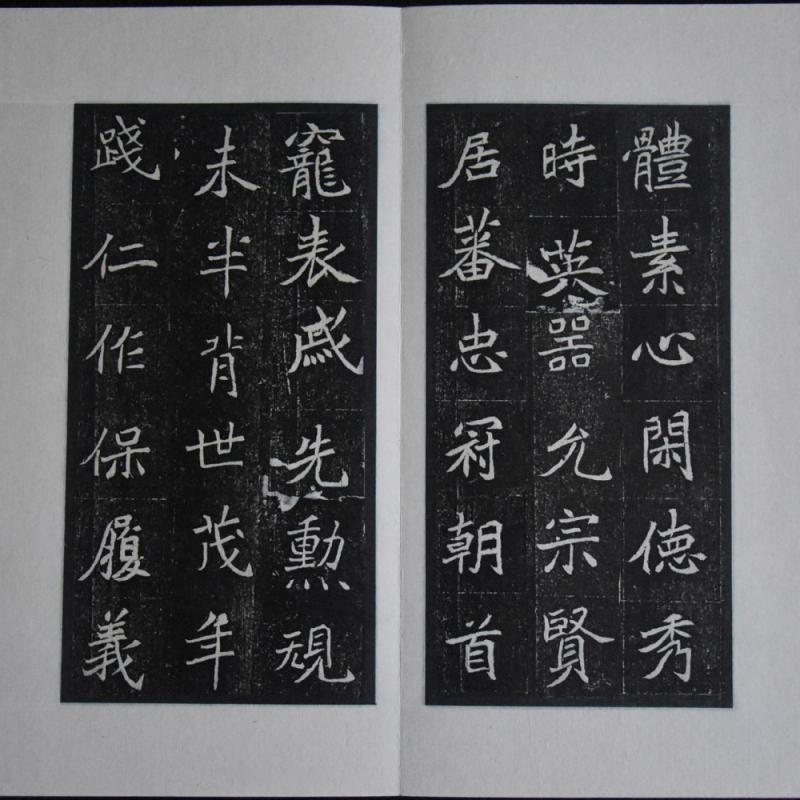 體素心閑徳秀
時英器允宗賢
居蕃忠冠朝首
寵表戚先勳規
未半背世茂年
踐仁作保履義